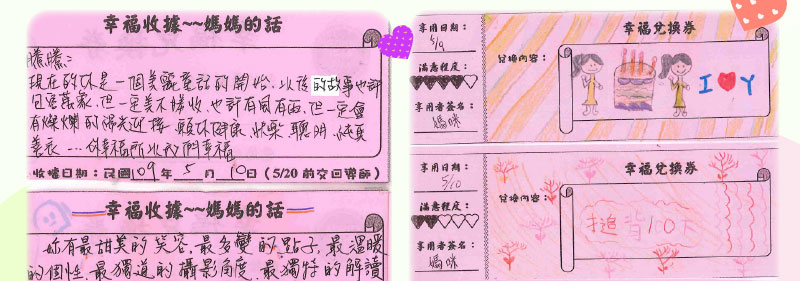 幸福收據~~媽媽的話
騰騰：
現在的你是一個美麗童話的開始，以後的故事也許
包容萬象，但一定美不勝收，也許有風有雨，但一定會
有燦爛的陽光迎接，願你健康、快樂、聰明、純真
善良…
收據日期：民國109年5月10日(5/20前交回導師)
幸福收據~~媽媽的話
妳有最甜美的笑容，最多變的點子，最溫暖
的個性，最獨道的攝影角度，最獨特的解讀
享用日期：
5/9
滿意程度：
享用者簽名：
媽咪
幸福兌換券
兌換內容：
I Y
享用日期：
5/10
滿意程度：
享用者簽名：
媽咪
幸福兌換券
兌換內容：
搥背100下